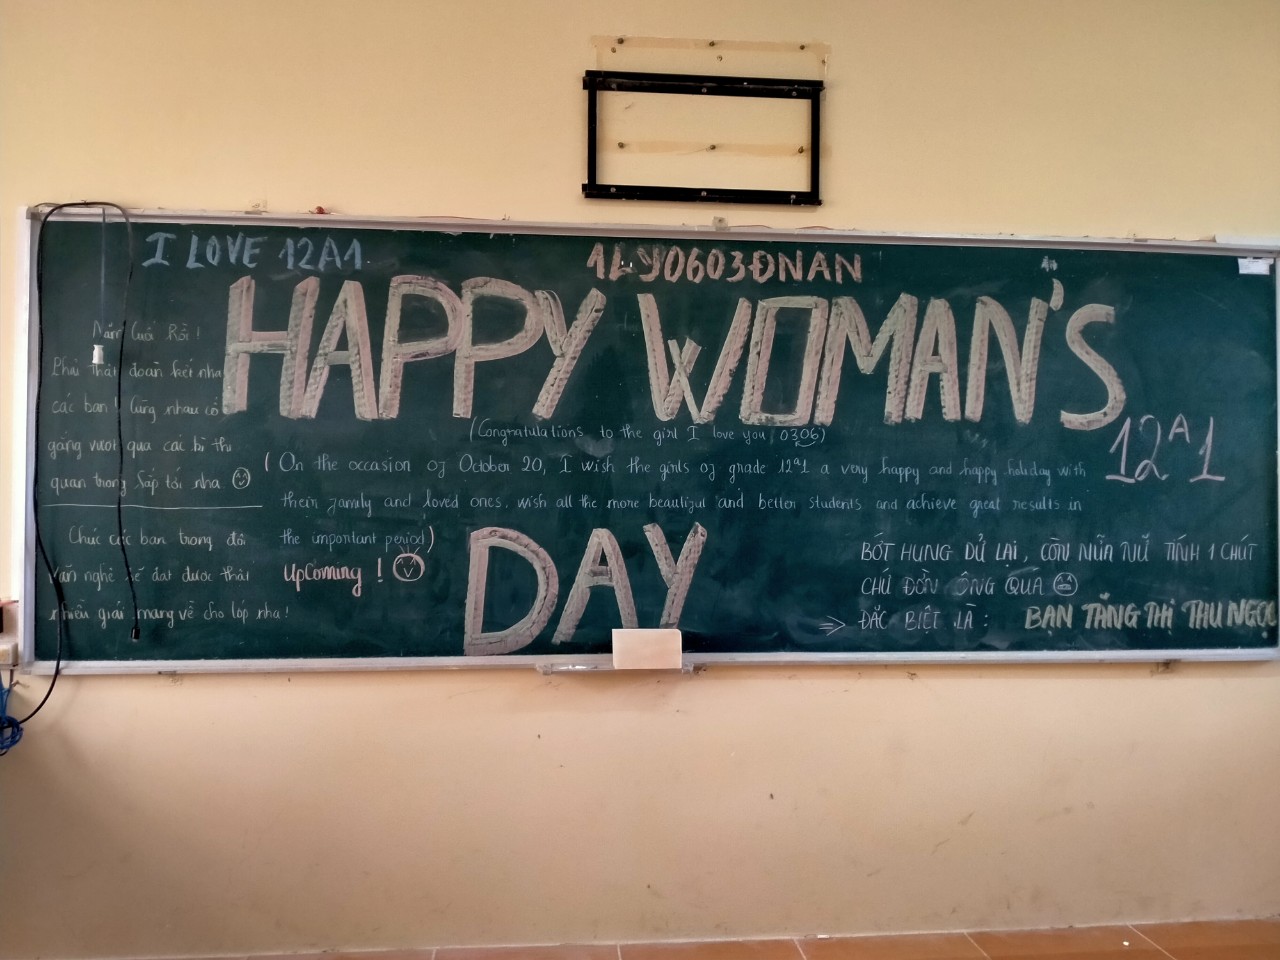 I LOVE 12A1
1LY0603ĐNAN
HAPPY WOMAN'S
Năm Cuối Rồi !
Phải thật đoàn kết nha
các bạn ! Cùng nhau cố
gắng vượt qua các kì thi
quan trọng sắp tới nha
Chúc các bạn trong đội
văn nghệ sẽ đạt được thật
nhiều giải mang về cho lớp nha !
(Congratulations to the girl I love you 0306)
12A1
( On the occasion of October 20, I wish the girls of grade 12A1 a very happy and happy holiday with
their family and loved ones, wish all the more beautiful and better students and achieve great results in
the important period)
UpComing !
DAY
BỚT HUNG DỮ LẠI, CÒN NỮA NỮ TÍNH 1 CHÚT
CHỨ ĐÀN ÔNG QUÁ
=> ĐẶC BIỆT LÀ : BẠN TĂNG THỊ THU NGỌC